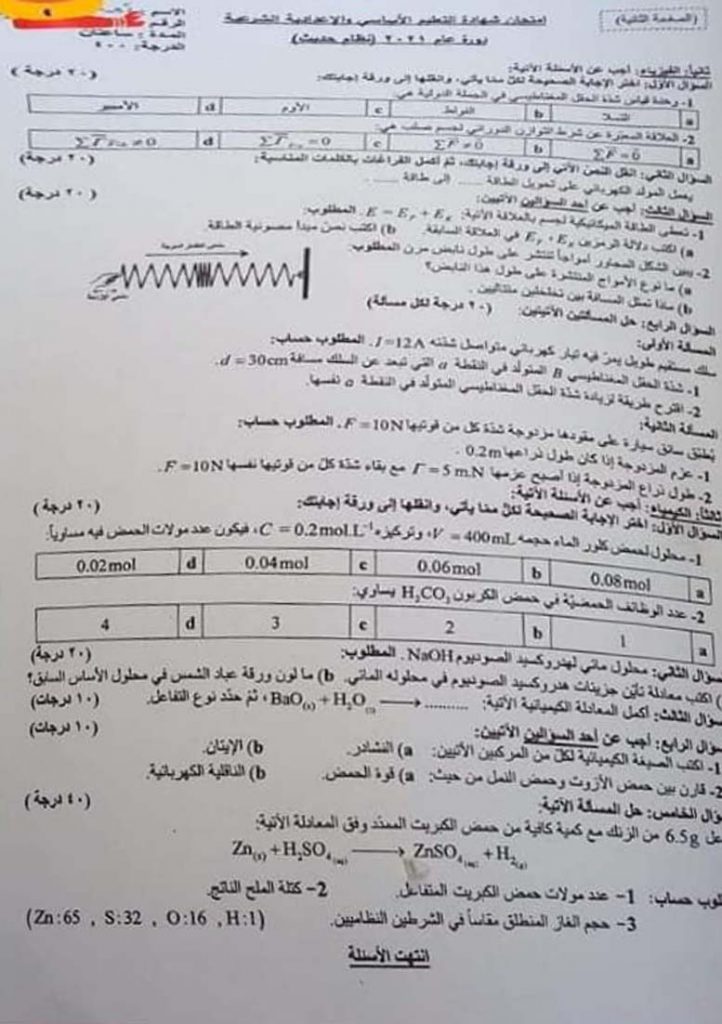 (الصفحة الثانية)
امتحان شهادة التعليم الأساسي والإعدادية الشرعية
دورة عام ٢٠٢١ (نظام حديث)
الاسم:
الرقم:
المدة: ساعتان
الدرجة: ٢٠٠
ثانياً: الفيزياء: أجب عن الأسئلة الآتية:
السؤال الأول: اختر الإجابة الصحيحة لكلّ مما يأتي، وانقلها إلى ورقة إجابتك: (٢٠ درجة)
1- وحدة قياس شدّة الحقل المغناطيسي في الجملة الدولية هي:
a التسلا b الفولط c الأوم d الأمبير
2- العلاقة المعبّرة عن شرط التوازن الدوراني لجسم صلب هي:
a b c d
السؤال الثاني: انقل النص الآتي إلى ورقة إجابتك، ثم أكمل الفراغات بالكلمات المناسبة: (٢٠ درجة)
يعمل المولد الكهربائي على تحويل الطاقة ...... إلى طاقة ......
السؤال الثالث: أجب عن أحد السؤالين الآتيين: (٢٠ درجة)
1- تعطى الطاقة الميكانيكية لجسم بالعلاقة الآتية: E = E_P + E_K. المطلوب:
a) اكتب دلالة الرمزين E_P , E_K في العلاقة السابقة. b) اكتب نص مبدأ مصونية الطاقة.
2- يبين الشكل المجاور أمواجاً تنتشر على طول نابض مرن المطلوب:
a) ما نوع الأمواج المنتشرة على طول هذا النابض؟
b) ماذا تمثل المسافة بين تخلخلين متتاليين.
السؤال الرابع: حل المسألتين الآتيتين: (٢٠ درجة لكل مسألة)
المسألة الأولى:
سلك مستقيم طويل يمرّ فيه تيار كهربائي متواصل شدّته I=12A. المطلوب حساب:
1- شدّة الحقل المغناطيسي B المتولّد في النقطة a التي تبعد عن السلك مسافة d = 30cm.
2- اقترح طريقة لزيادة شدّة الحقل المغناطيسي المتولّد في النقطة a نفسها.
المسألة الثانية:
يُطبّق سائق سيارة على مقودها مزدوجة شدّة كل من قوتيها F=10N. المطلوب حساب:
1- عزم المزدوجة إذا كان طول ذراعها 0.2m.
2- طول ذراع المزدوجة إذا أصبح عزمها Γ = 5 m.N مع بقاء شدّة كلّ من قوتيها نفسها F=10N.
ثالثاً: الكيمياء: أجب عن الأسئلة الآتية:
السؤال الأول: اختر الإجابة الصحيحة لكلّ مما يأتي، وانقلها إلى ورقة إجابتك: (٢٠ درجة)
1- محلول لحمض كلور الماء حجمه V = 400mL، وتركيزه C = 0.2mol.L⁻¹، فيكون عدد مولات الحمض فيه مساوياً:
a 0.08mol b 0.06mol c 0.04mol d 0.02mol
2- عدد الوظائف الحمضيّة في حمض الكربون H₂CO₃ يساوي:
a 1 b 2 c 3 d 4
سؤال الثاني: محلول مائي لهدروكسيد الصوديوم NaOH. المطلوب: (٢٠ درجة)
) اكتب معادلة تأيّن جزيئات هدروكسيد الصوديوم في محلوله المائي. b) ما لون ورقة عباد الشمس في محلول الأساس السابق؟
سؤال الثالث: أكمل المعادلة الكيميائية الآتية: BaO₍s₎ + H₂O₍l₎ ⟶ ..........، ثمّ حدّد نوع التفاعل. (١٠ درجات)
سؤال الرابع: أجب عن أحد السؤالين الآتيين: (١٠ درجات)
1- اكتب الصيغة الكيميائية لكلّ من المركبين الآتيين: a) النشادر. b) الإيتان.
2- قارن بين حمض الأزوت وحمض النمل من حيث: a) قوة الحمض. b) الناقلية الكهربائية.
ؤال الخامس: حل المسألة الآتية: (٤٠ درجة)
عل 6.5g من الزنك مع كمية كافية من حمض الكبريت الممدّد وفق المعادلة الآتية:
Zn₍s₎ + H₂SO₄₍aq₎ ⟶ ZnSO₄₍aq₎ + H₂₍g₎
لوب حساب: 1- عدد مولات حمض الكبريت المتفاعل. 2- كتلة الملح الناتج.
3- حجم الغاز المنطلق مقاساً في الشرطين النظاميين. (Zn:65 , S:32 , O:16 ,H:1)
انتهت الأسئلة